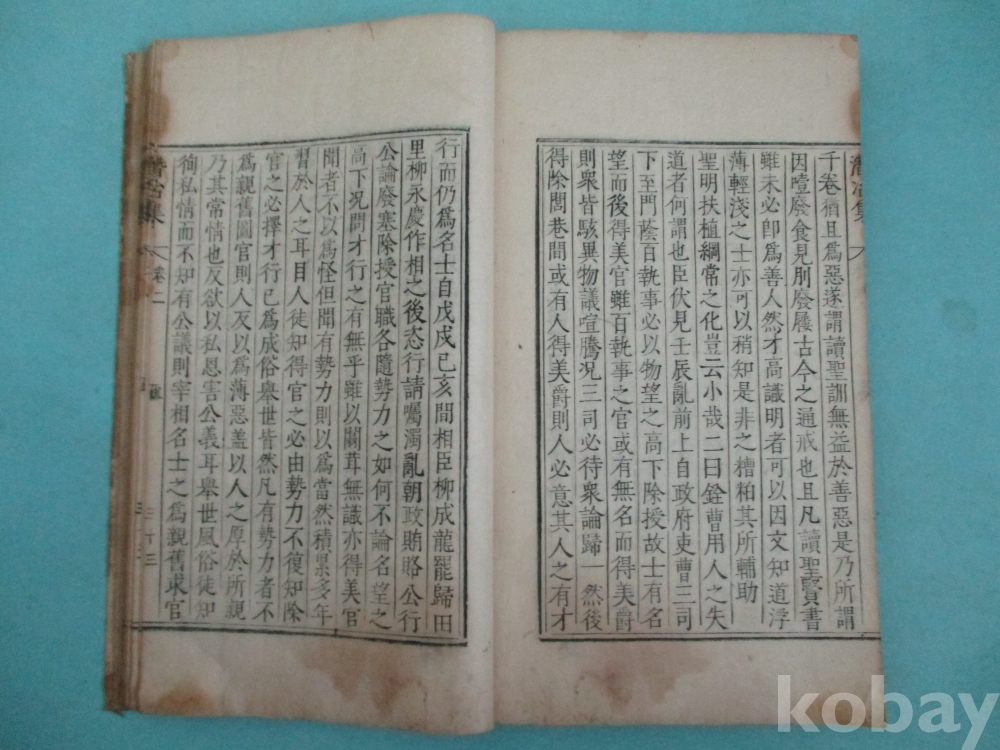 千卷猶且爲惡遂謂讀聖訓無益於善惡是乃所謂
因噎廢食見刖廢屨古今之通戒也且凡讀聖賢書
雖未必即爲善人然才高識明者可以因文知道浮
薄輕淺之士亦可以稍知是非之糟粕其所輔助
聖明扶植綱常之化豈云小哉二曰銓曹用人之失
道者何謂也臣伏見壬辰亂前上自政府吏曹三司
下至門蔭百執事必以物望之高下除授故士有名
望而後得美官雖百執事之官或有無名而得美爵
則衆皆駭異物議喧騰况三司必待衆論歸一然後
得除閭巷間或有人得美爵則人必意其人之有才
行而仍爲名士自戊戌己亥間相臣柳成龍罷歸田
里柳永慶作相之後恣行請囑濁亂朝政賄賂公行
公論廢塞除授官職各隨勢力之如何不論名望之
高下况問才行之有無乎雖以闒茸無識亦得美官
聞者不以爲怪但聞有勢力則以爲當然積累多年
習於人之耳目人徒知得官之必由勢力不復知除
官之必擇才行已爲成俗舉世皆然凡有勢力者不
爲親舊圖官則人反以爲薄惡盖以人之厚於所親
乃其常情也反欲以私恩害公義耳舉世風俗徒知
徇私情而不知有公議則宰相名士之爲親舊求官
潛冶集 卷二
kobay